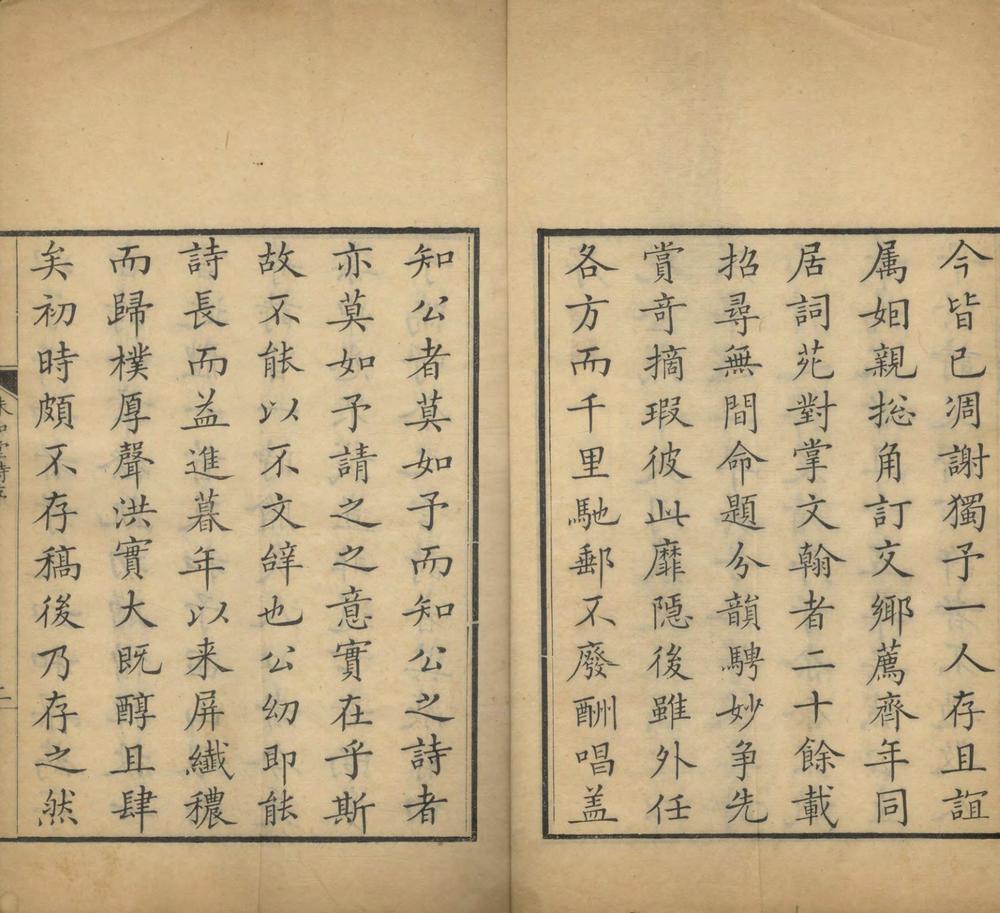 今皆已凋謝獨予一人存且誼
属姻親捴角訂交鄉薦齊年同
居詞苑對掌文翰者二十餘載
招尋無間命題分韻騁妙争先
賞竒摘瑕彼此靡隱後雖外任
各方而千里馳郵不廢酬唱盖
知公者莫如予而知公之詩者
亦莫如予請之之意實在乎斯
故不能以不文辝也公幼即能
詩長而益進暮年以来屏纎穠
而歸樸厚聲洪實大既醇且肆
矣初時頗不存稿後乃存之然